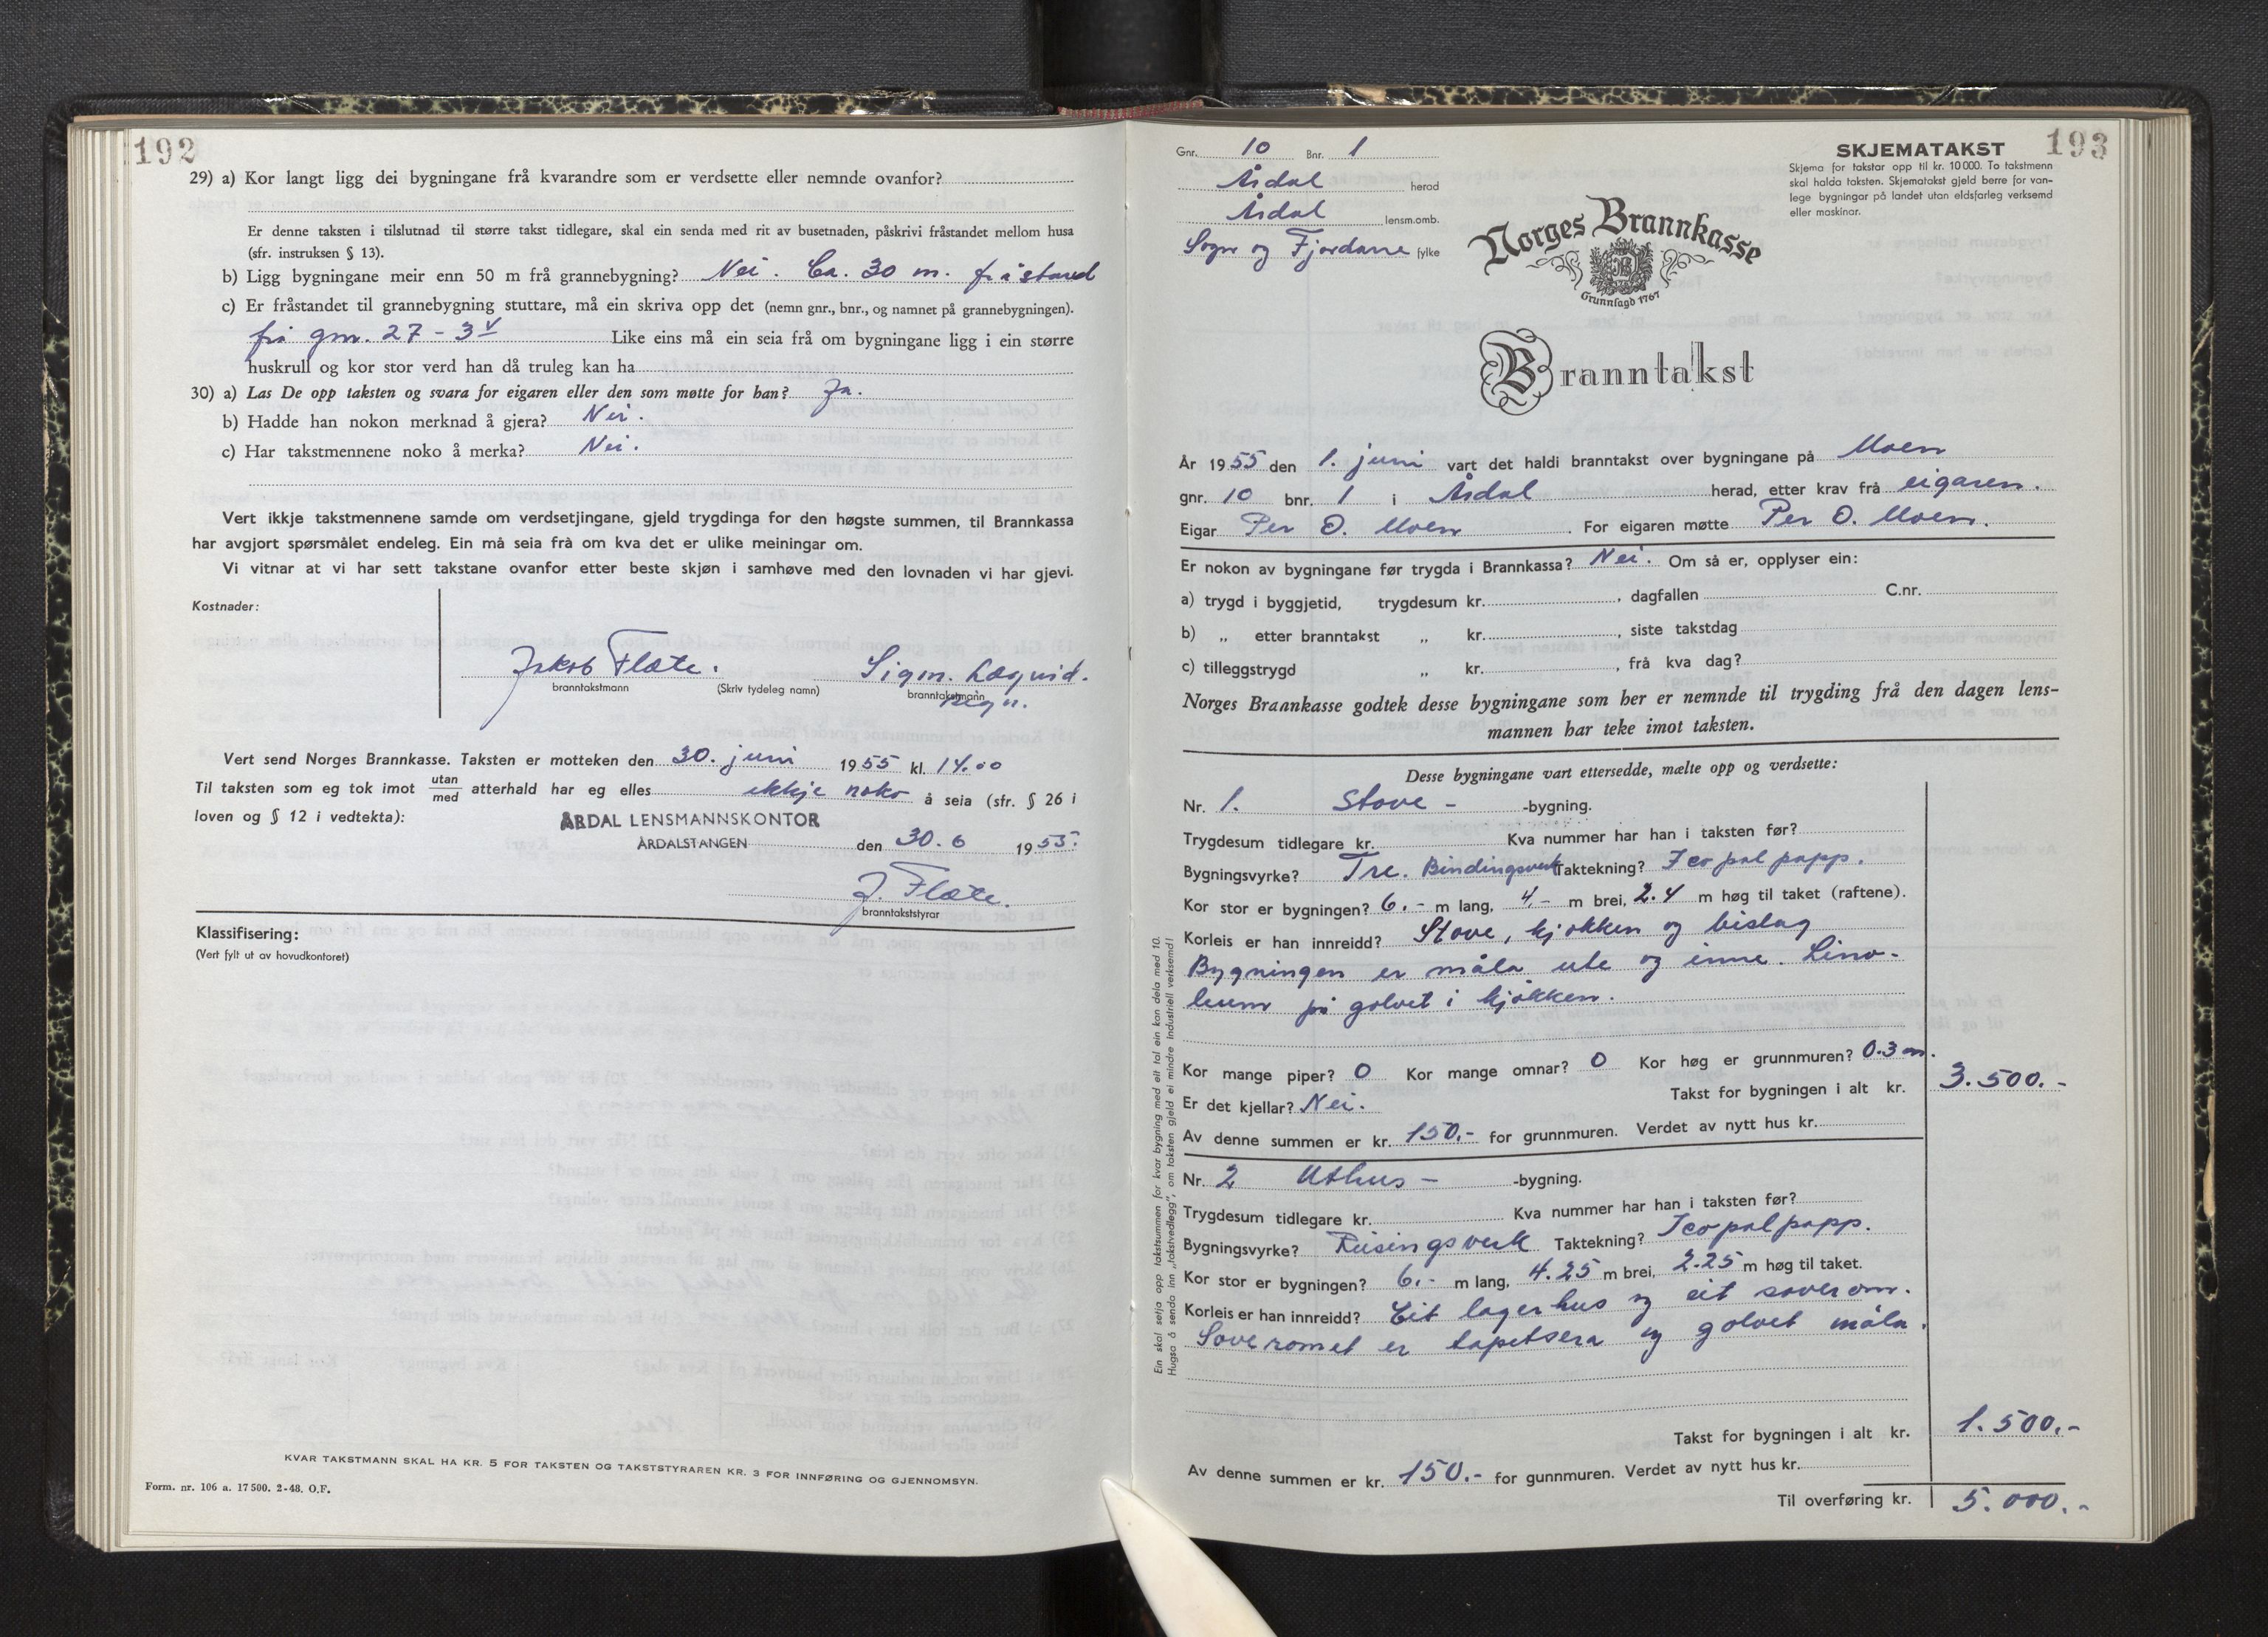 192
29) a) Kor langt ligg dei bygningane frå kvarandre som er verdsette eller nemnde ovanfor?
Er denne taksten i tilslutnad til større takst tidlegare, skal ein senda med rit av busetnaden, påskrivi fråstandet mellom husa
(sfr. instruksen § 13).
b) Ligg bygningane meir enn 50 m frå grannebygning? Nei. Ca. 30 m. fråstand
c) Er fråstandet til grannebygning stuttare, må ein skriva opp det (nemn gnr., bnr., og namnet på grannebygningen).
frå gnr. 27 - 3 Like eins må ein seia frå om bygningane ligg i ein større
huskrull og kor stor verd han då truleg kan ha
30) a) Las De opp taksten og svara for eigaren eller den som møtte for han? Ja.
b) Hadde han nokon merknad å gjera? Nei.
c) Har takstmennene noko å merka? Nei.
Vert ikkje takstmennene samde om verdsetjingane, gjeld trygdinga for den høgste summen, til Brannkassa
har avgjort spørsmålet endeleg. Ein må seia frå om kva det er ulike meiningar om.
Vi vitnar at vi har sett takstane ovanfor etter beste skjøn i samhøve med den lovnaden vi har gjevi.
Kostnader:
Jakob Flæte. Sigm. Lægreid.
branntakstmann (Skriv tydeleg namn) branntakstmann
Vert send Norges Brannkasse. Taksten er motteken den 30. juni 1955 kl. 14.00
Til taksten som eg tok imot utan/med atterhald har eg elles ikkje noko å seia (sfr. § 26 i
loven og § 12 i vedtekta):
ÅRDAL LENSMANNSKONTOR
ÅRDALSTANGEN den 30.6 1955.
J. Flæte.
branntakststyrar
Klassifisering:
(Vert fylt ut av hovudkontoret)
KVAR TAKSTMANN SKAL HA KR. 5 FOR TAKSTEN OG TAKSTSTYRAREN KR. 3 FOR INNFØRING OG GJENNOMSYN.
Form. nr. 106 a. 17500. 2-48. O.F.
193
Gnr. 10 Bnr. 1
Årdal herad
Årdal lensm.omb.
Sogn og Fjordane fylke
SKJEMATAKST
Skjema for takstar opp til kr. 10 000. To takstmenn
skal halda taksten. Skjematakst gjeld berre for van-
lege bygningar på landet utan eldsfarleg verksemd
eller maskinar.
Norges Brannkasse
Grunnlagd 1767
Branntakst
År 1955 den 1. juni vart det haldi branntakst over bygningane på Moen
gnr. 10 bnr. 1 i Årdal herad, etter krav frå eigaren.
Eigar Per O. Moen. For eigaren møtte Per O. Moen.
Er nokon av bygningane før trygda i Brannkassa? Nei. Om så er, opplyser ein:
a) trygd i byggjetid, trygdesum kr. , dagfallen C.nr.
b) „ etter branntakst „ kr. , siste takstdag
c) tilleggstrygd „ kr. , frå kva dag?
Norges Braankasse godtek desse bygningane som her er nemnde til trygding frå den dagen lens-
mannen har teke imot taksten.
Desse bygningane vart ettersedde, mælte opp og verdsette:
Nr. 1. Stove - -bygning.
Trygdesum tidlegare kr. Kva nummer har han i taksten før?
Bygningsvyrke? Tre. Bindingsverk Taktekning? Icopalpapp.
Kor stor er bygningen? 6.- m lang, 4.- m brei, 2.4 m høg til taket (raftene).
Korleis er han innreidd? Stove, kjøkken og bislag
Bygningen er måla ute og inne. Lino-
leum på golvet i kjøkken.
Kor mange piper? 0 Kor mange omnar? 0 Kor høg er grunnmuren? 0.3 m.
Er det kjellar? Nei. Takst for bygningen i alt kr. 3.500.-
Av denne summen er kr. 150.- for grunnmuren. Verdet av nytt hus kr.
Nr. 2 Uthus - -bygning.
Trygdesum tidlegare kr. Kva nummer har han i taksten før?
Bygningsvyrke? Reisingsverk Taktekning? Icopalpapp.
Kor stor er bygningen? 6.- m lang, 4.25 m brei, 2.25 m høg til taket.
Korleis er han innreidd? Eit lagerhus og eit soverom.
Soveromet er tapetsera og golvet måla.
Takst for bygningen i alt kr. 1.500.-
Av denne summen er kr. 150.- for gunnmuren. Verdet av nytt hus kr.
Til overføring kr. 5.000.-
Ein skal setja opp takstsummen for kvar bygning med eit tal ein kan dela med 10.
Hugsa å senda inn „takstvedlegg", om taksten gjeld ei mindre industriell verksemd!